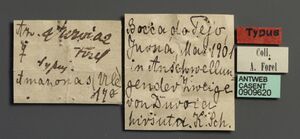 Forel
Typus
Amazonas, Ule
Boca do Tejo
Juruá, Mai 1901
in Anschwellun
gen der Zweige
von Duroia
hirsuta K. Sch.
Typus
Coll.
A. Forel
ANTWEB
CASENT
0909620